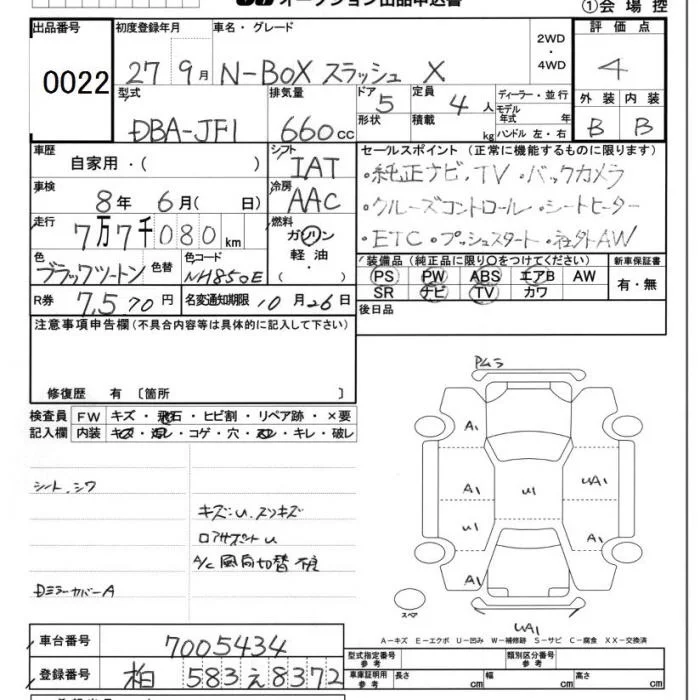 オークション出品申込書
①会場控
出品番号
0022
初度登録年月
27 9月
車名・グレード
N-BOX スラッシュ X
2WD
・
4WD
評価点
4
型式
DBA-JF1
排気量
660cc
ドア 5
形状
定員 4人
積載 kg
ディーラー・並行
モデル年式 年
ハンドル 左・右
外装 内装
B B
車歴
自家用・( )
シフト
IAT
セールスポイント(正常に機能するものに限ります)
・純正ナビ・TV・バックカメラ
・クルーズコントロール・シートヒーター
・ETC・プッシュスタート・社外AW
車検
8年 6月( 日)
冷房
AAC
走行
7万7千080km
燃料
ガソリン
軽油
・
色
ブラックツートン
色替
色コード
NH850E
装備品(純正品に限り○をつけてください)
PS PW ABS エアB AW
SR ナビ TV カワ
新車保証書
有・無
R券
7,570円
名変通知期限 10月26日
後日品
注意事項申告欄(不具合内容等は具体的に記入して下さい)
修復歴 有〔箇所 〕
検査員
記入欄
FW キズ・飛石・ヒビ割・リペア跡・×要
内装 キズ・汚れ・コゲ・穴・スレ・キレ・破レ
シート、シワ
キズ・U、スリキズ
ロアサポートU
A/C 風向切替 不良
Dミラーカバー A
PAムラ
A1
A1
U1
U1
UA1
A1
A1
スペア
UA1
A-キズ E-エクボ U-凹み W-補修跡 S-サビ C-腐食 XX-交換済
車台番号
7005434
登録番号
柏 583 え 8372
型式指定番号
参考
類別区分番号
参考
車庫証明用
参考
長さ cm
幅 cm
高さ cm